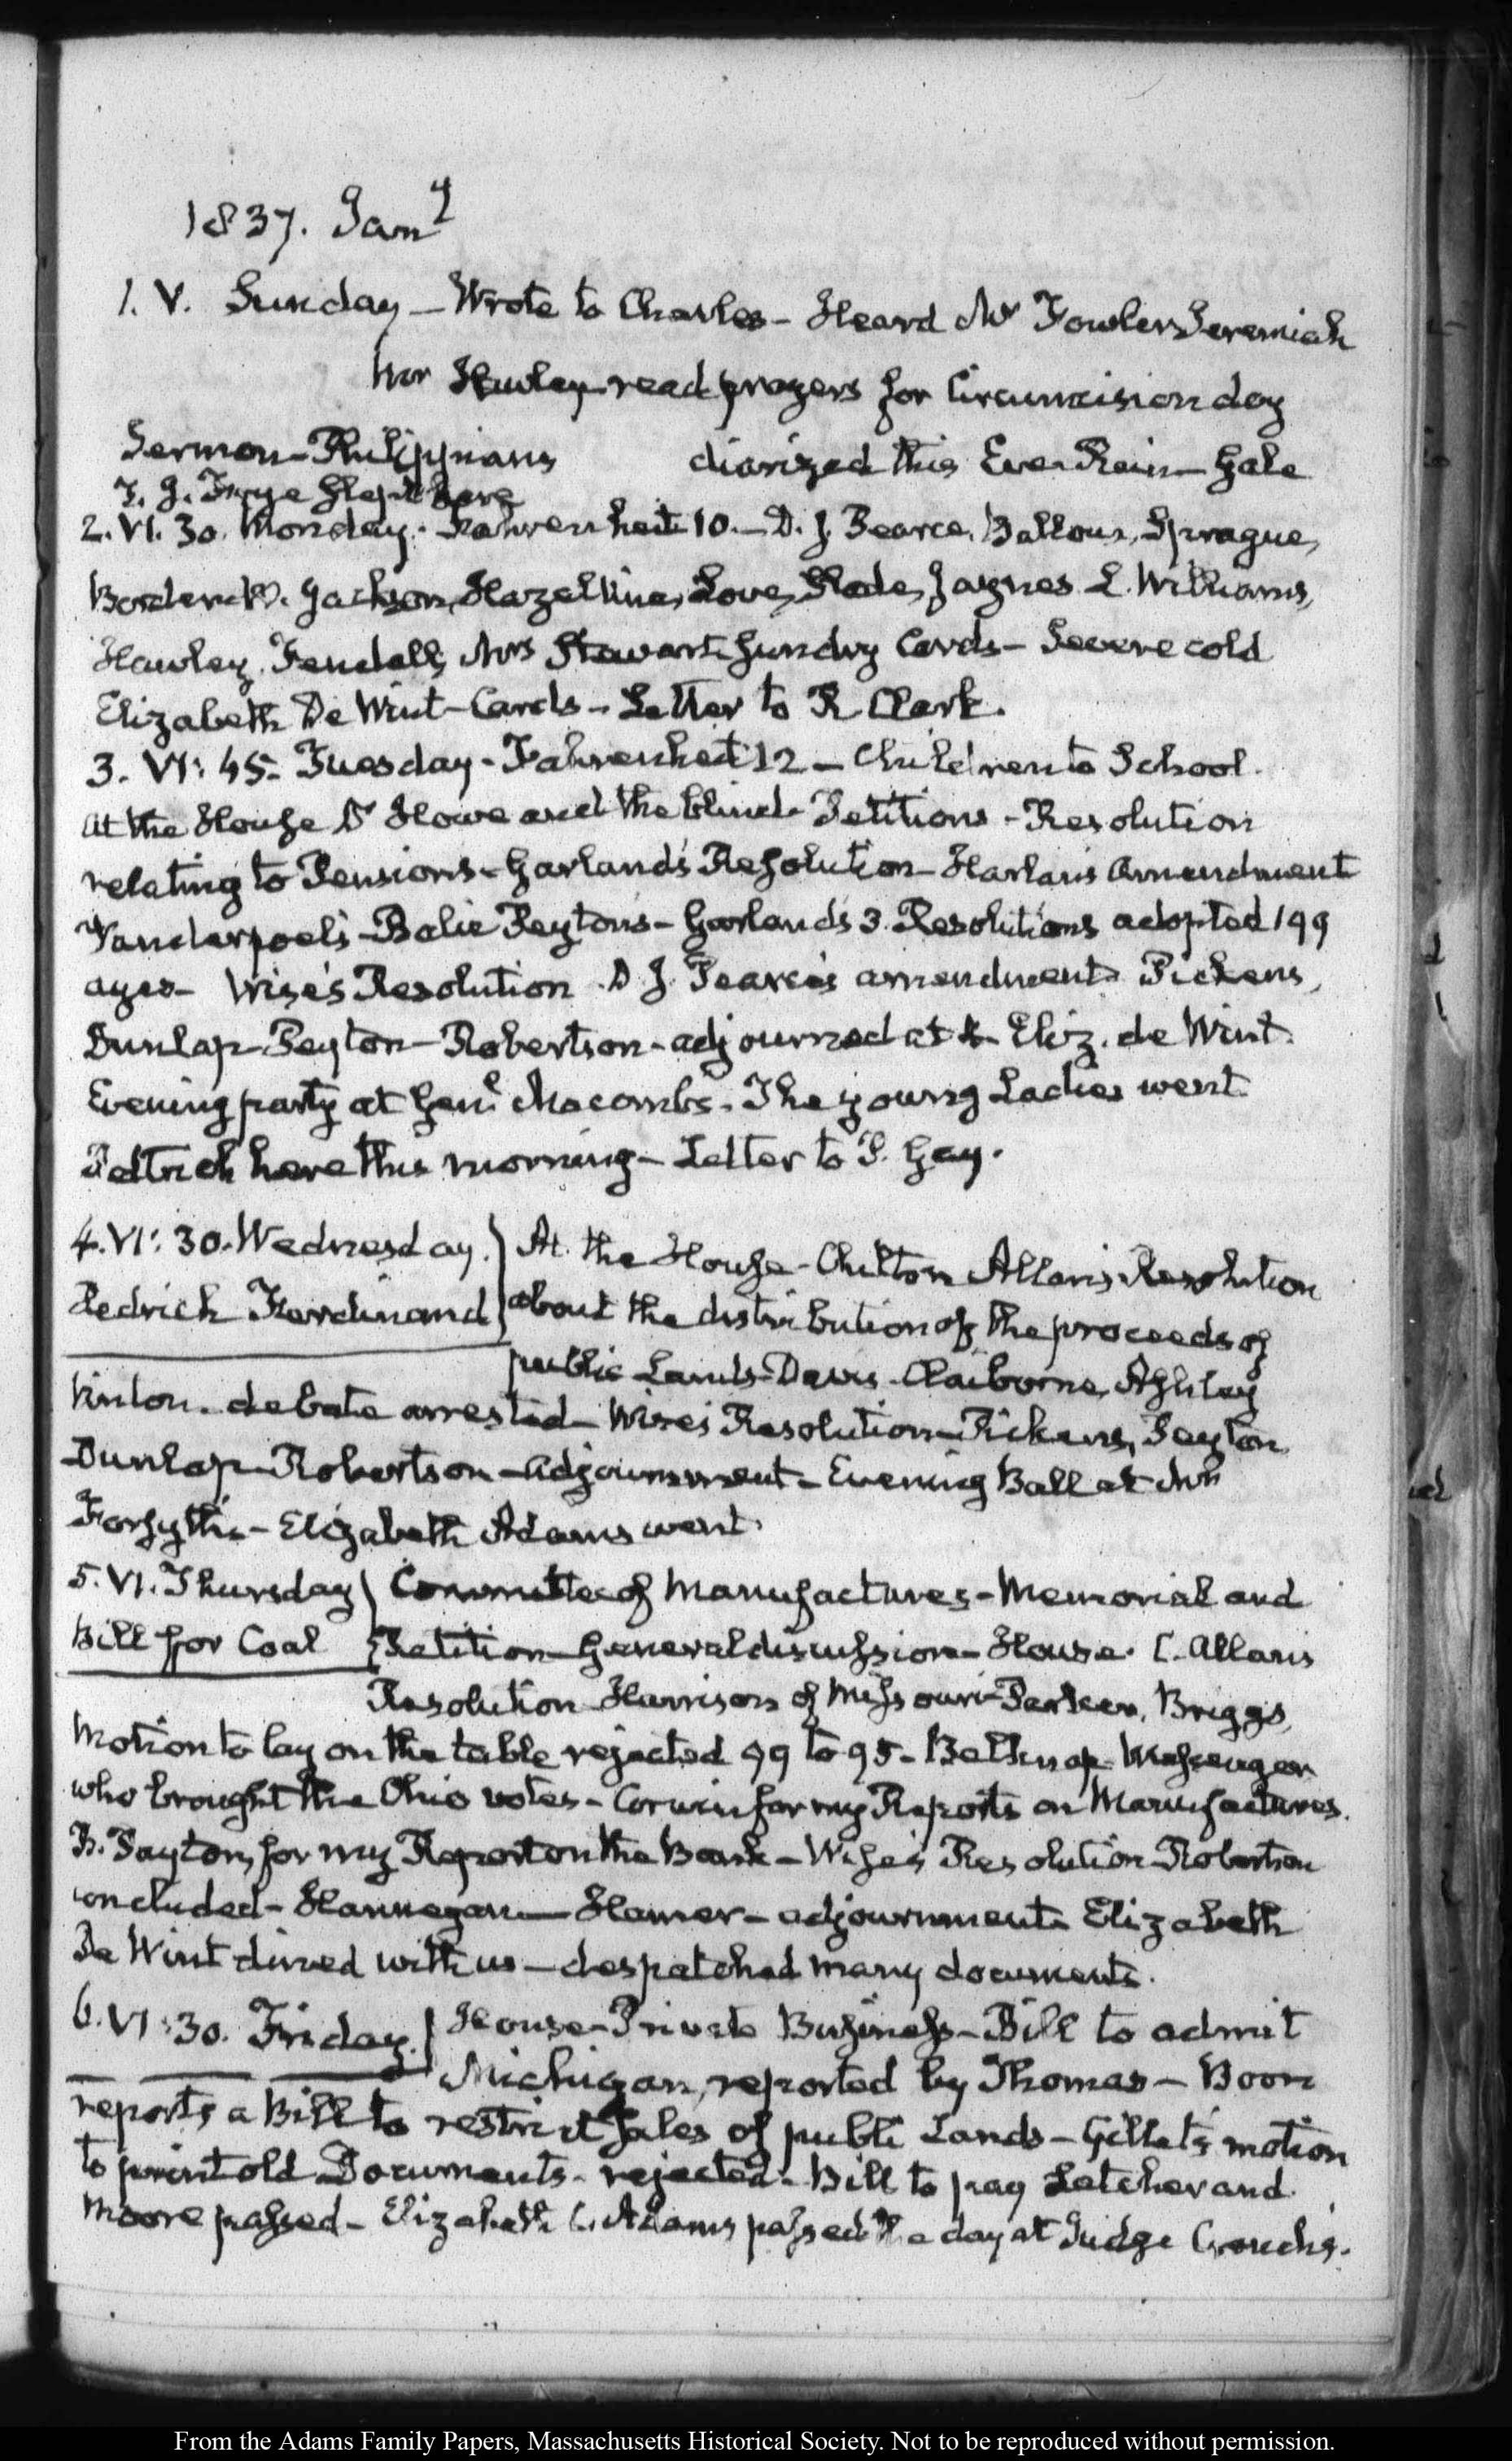 1837. Jany
1. V. Sunday – Wrote to Charles – Heard Mr Fowler Jeremiah
Mr Hawley read prayers for Circumcision day
Sermon – Philippians diarized this Eve. Rain – Gale
T. J. Frye slept here
2. VI. 30. Monday. Fahrenheit 10. – D. J. Pearce, Ballou, Sprague,
Borden, Jackson, Hazeltine, Love, Slade, Jaynes L. Williams,
Hawley, Fendall, Mrs Stewart Sundry Cards – Severe cold
Elizabeth De Wint – Cards – Letter to R Clark.
3. VI: 45. Tuesday – Fahrenheit 12 – Children to School.
At the House Dr Howe and the blind – Petitions – Resolution
relating to Pensions – Garland's Resolution – Harlan's Amendment
Vanderpoel's – Balie Peyton's – Garland's 3. Resolutions adopted 199
ayes – Wise's Resolution D J. Pearce's amendment – Pickens,
Dunlap – Peyton – Robertson – adjourned at 4 – Eliz. de Wint.
Evening party at Genl Macombs. The young Ladies went
Pettrich here this morning – Letter to P. Gay.
4. VI: 30. Wednesday. } At the House – Chilton Allan's Resolution
Pedrick Ferdinand } about the distribution of the proceeds of
public Lands – Davis – Claiborne, Ashley
Vinton. debate arrested – Wise's Resolution – Pickens, Peyton
Dunlap – Robertson – Adjournment – Evening Ball at Mr
Forsyth's – Elizabeth Adams went.
5. VI. Thursday } Committee of Manufactures – Memorial and
Bill for Coal } Petition – General discussion – House. C. Allan's
Resolution Harrison of Missouri – Parker, Briggs,
Motion to lay on the table rejected 99 to 95 – Belknap Messenger
who brought the Ohio votes – Corwin for my Reports on Manufactures.
B. Peyton, for my Report on the Bank – Wise's Resolution – Robertson
concluded – Hannegan – Hamer – adjournment – Elizabeth
De Wint dined with us – despatched many documents.
6. VI: 30. Friday. } House – Private Business – Bill to admit
Michigan, reported by Thomas – Boon
reports a Bill to restrict sales of public Lands – Gillet's motion
to print old Documents – rejected – Bill to pay Letcher and
Moore passed – Elizabeth C. Adams passed the day at Judge Cranch's.
From the Adams Family Papers, Massachusetts Historical Society. Not to be reproduced without permission.